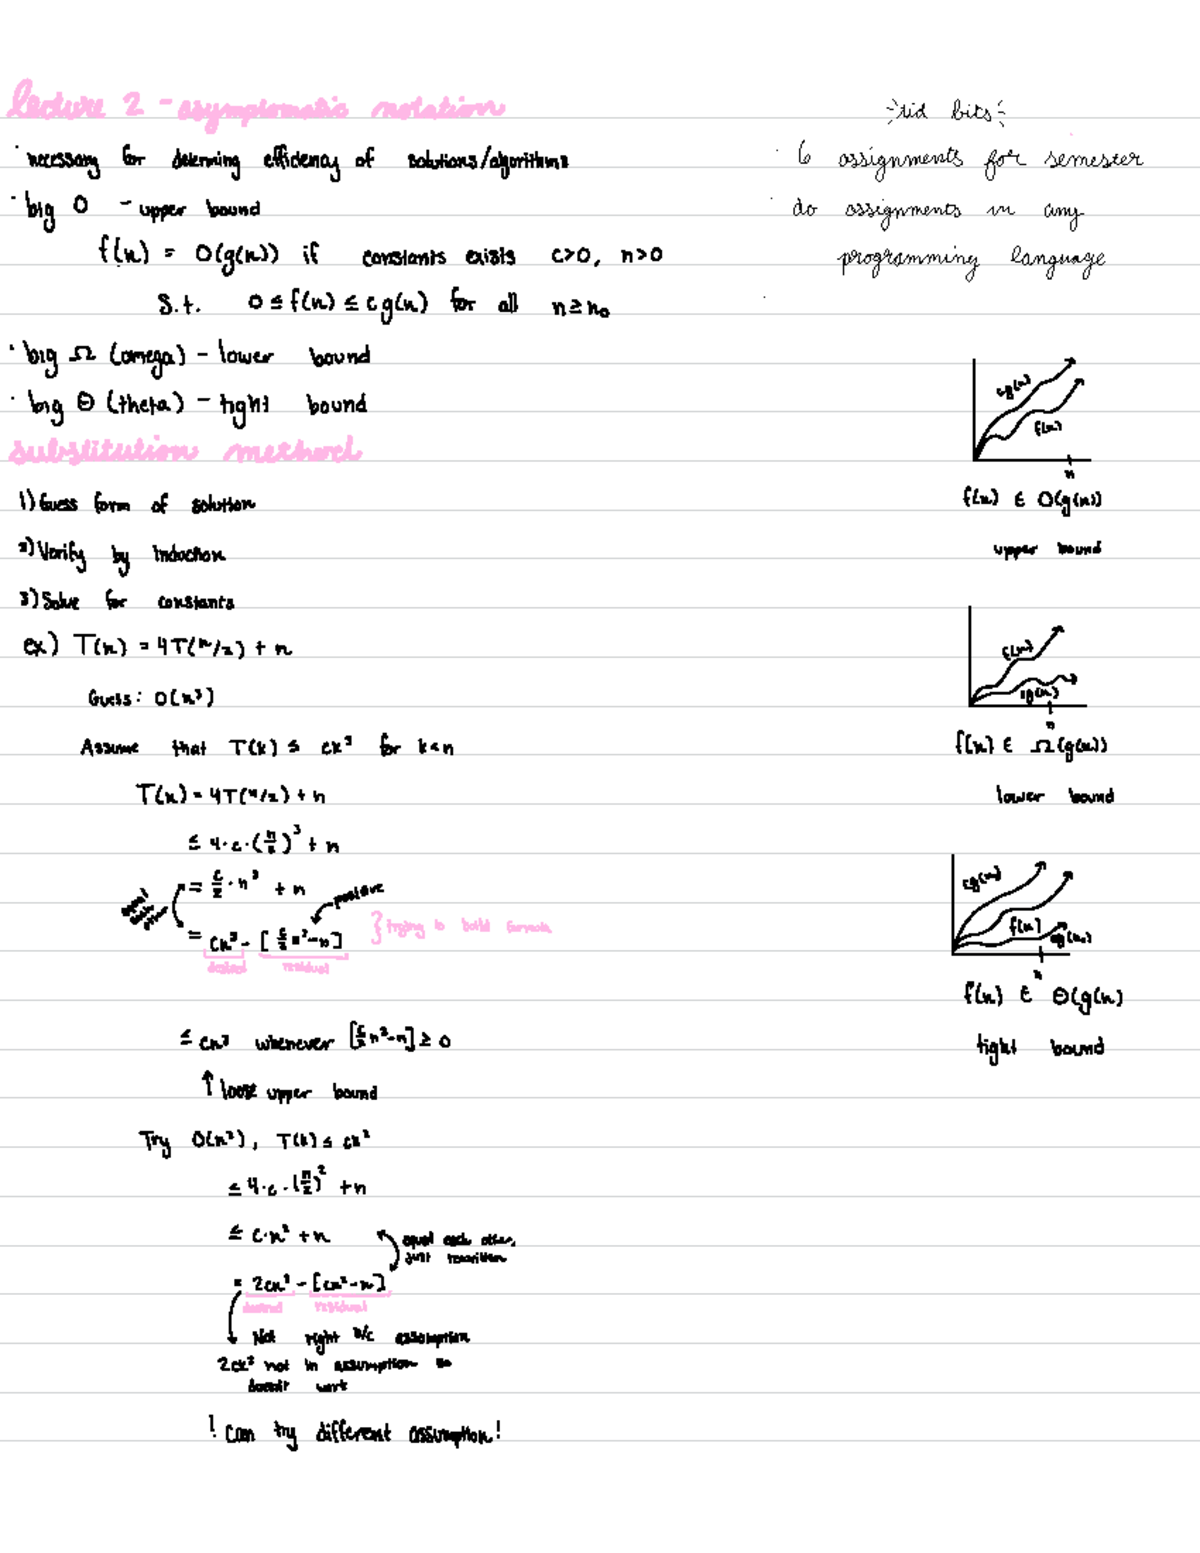 lecture 2 - asymptomatic notation
· necessary for determing efficiency of solutions/algorithms
· big O - upper bound
f(n) = O(g(n)) if constants exists c>0, n>0
s.t. 0 ≤ f(n) ≤ cg(n) for all n ≥ n₀
· big Ω (omega) - lower bound
· big Θ (theta) - tight bound
substitution method
1) Guess form of solution
2) Verify by induction
3) Solve for constants
ex) T(n) = 4T(n/2) + n
Guess: O(n³)
Assume that T(k) ≤ ck³ for k<n
T(n) = 4T(n/2) + n
≤ 4·c·(n/2)³ + n
= c/2 · n³ + n
positive
= cn³ - [c/2 n³-n] } trying to build formula
desired residual
≤ cn³ whenever [c/2 n³-n] ≥ 0
↑ loose upper bound
Try O(n²), T(k) ≤ ck²
≤ 4·c·(n/2)² + n
≤ c·n² + n
equal each other,
just rewritten
= 2cn² - [cn²-n]
desired residual
Not right b/c assumption
2cn² not in assumption so
doesn't work
! can try different assumption!
tid bits
· 6 assignments for semester
· do assignments in any
programming language
cg(n)
f(n)
n
f(n) ∈ O(g(n))
upper bound
f(n)
cg(n)
n
f(n) ∈ Ω(g(n))
lower bound
cg(n)
f(n)
n
f(n) ∈ Θ(g(n)
tight bound